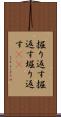 掘り返す掘
返す堀り返
す